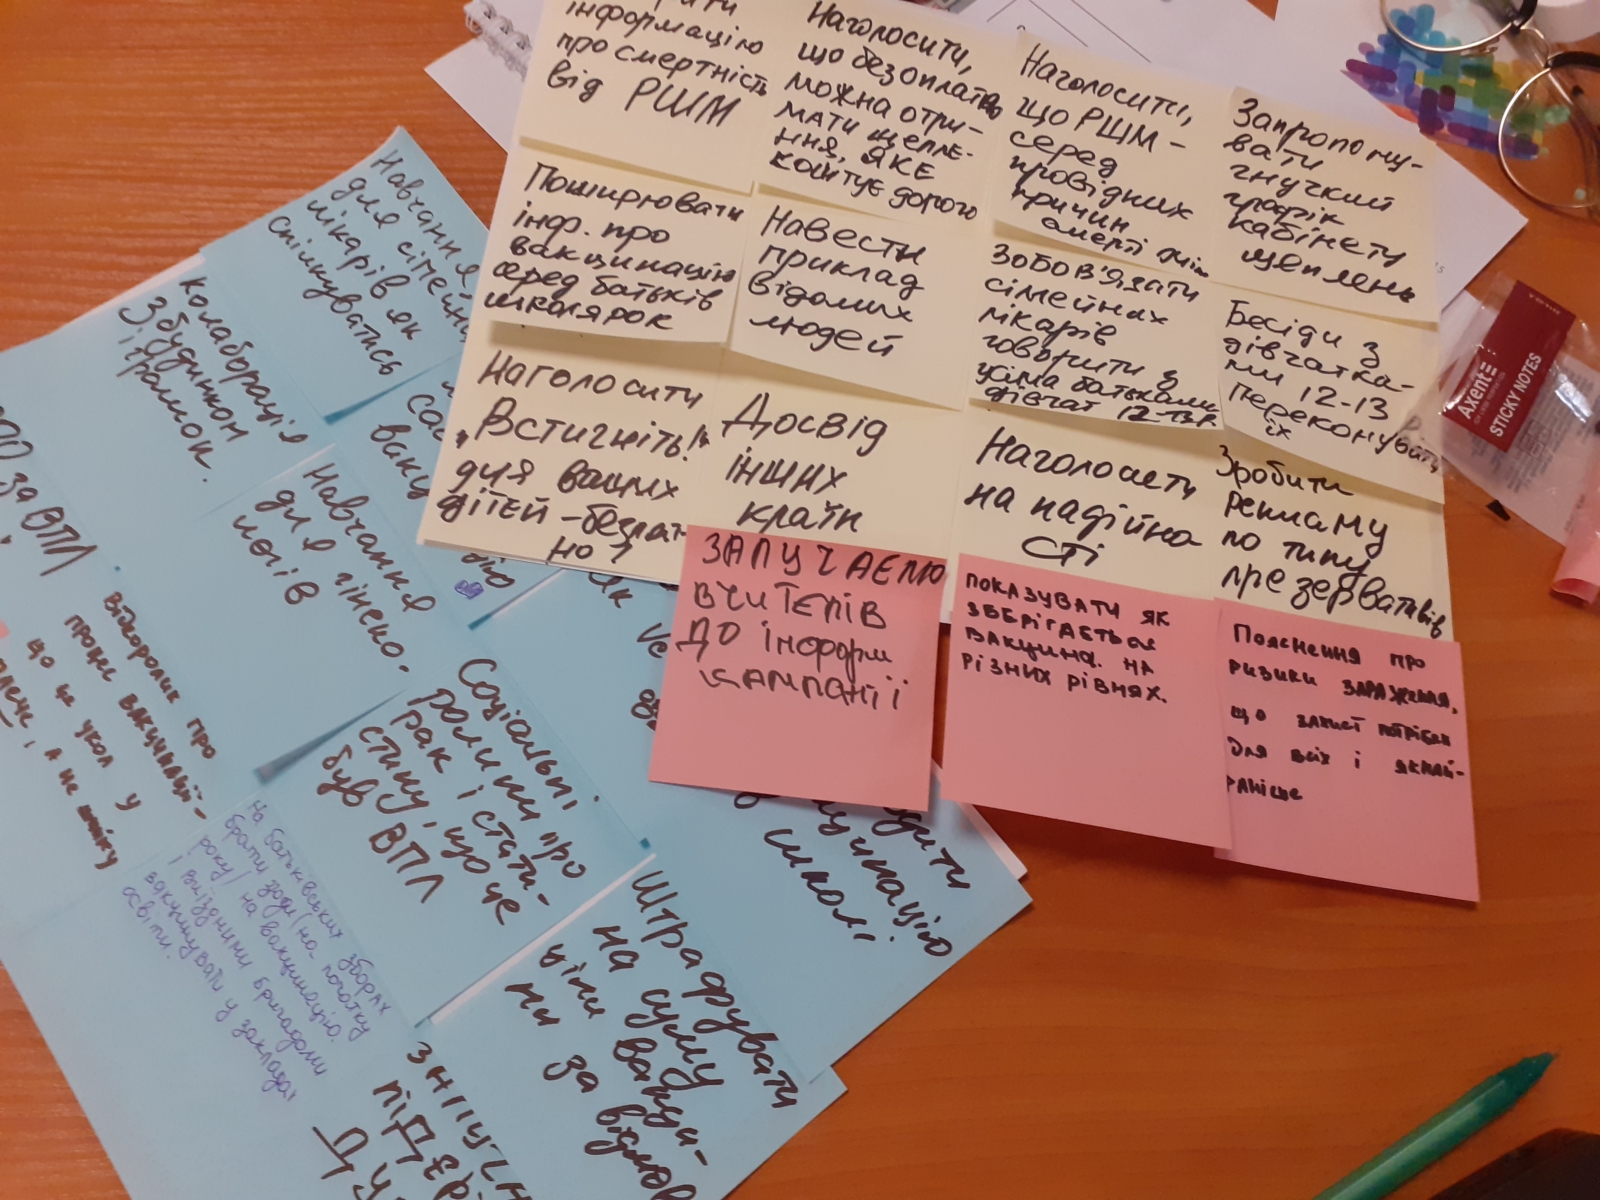 інформацію
про смертність
від РШМ
Наголосити,
що безоплатно
можна отри-
мати щепле-
ння, яке
коштує дорого
Наголосити,
що РШМ -
серед
провідних
причин
смерті
Запропону-
вати
гнучкий
графік
кабінету
щеплень
Поширювати
інф. про
вакцинацію
серед батьків
школярок
Навести
приклад
відомих
людей
Зобов'язати
сімейних
лікарів
говорити з
усіма батьками
дівчат 12-13р
Бесіди з
дівчатка-
ми 12-13
переконувать
їх
Наголосити
"Встигніть!"
для ваших
дітей - безплат
но?
Досвід
інших
країн
Наголосити
на надійно
сті
Зробити
рекламу
по типу
презервативів
ЗАЛУЧАЄМО
ВЧИТЕЛІВ
ДО інформ
КАМПАНІЇ
ПОКАЗУВАТИ ЯК
ЗБЕРІГАЄТЬСЯ
ВАКЦИНА. НА
РІЗНИХ РІВНЯХ.
Пояснення про
ризики зараження,
що захист потрібен
для всіх і якнай-
раніше
Axent
STICKY NOTES
Навчання
для сімейних
лікарів як
спілкуватись
колаборація
З будинком
вакц
Навчання
для гінеко-
логів
за ВПЛ
Відеоролик про
процес вакцинації-
що це укол у
плече, а не шийку
Соціальні
ролики про
рак і стати-
стику, що це
був ВПЛ
На батьківських зборах
брати згоди (на початку
року) на вакцинацію.
і виїздними бригадами
вакцинувати у закладах
освіти.
школі
Штрафувати
на суму
ціни вакци-
ни за